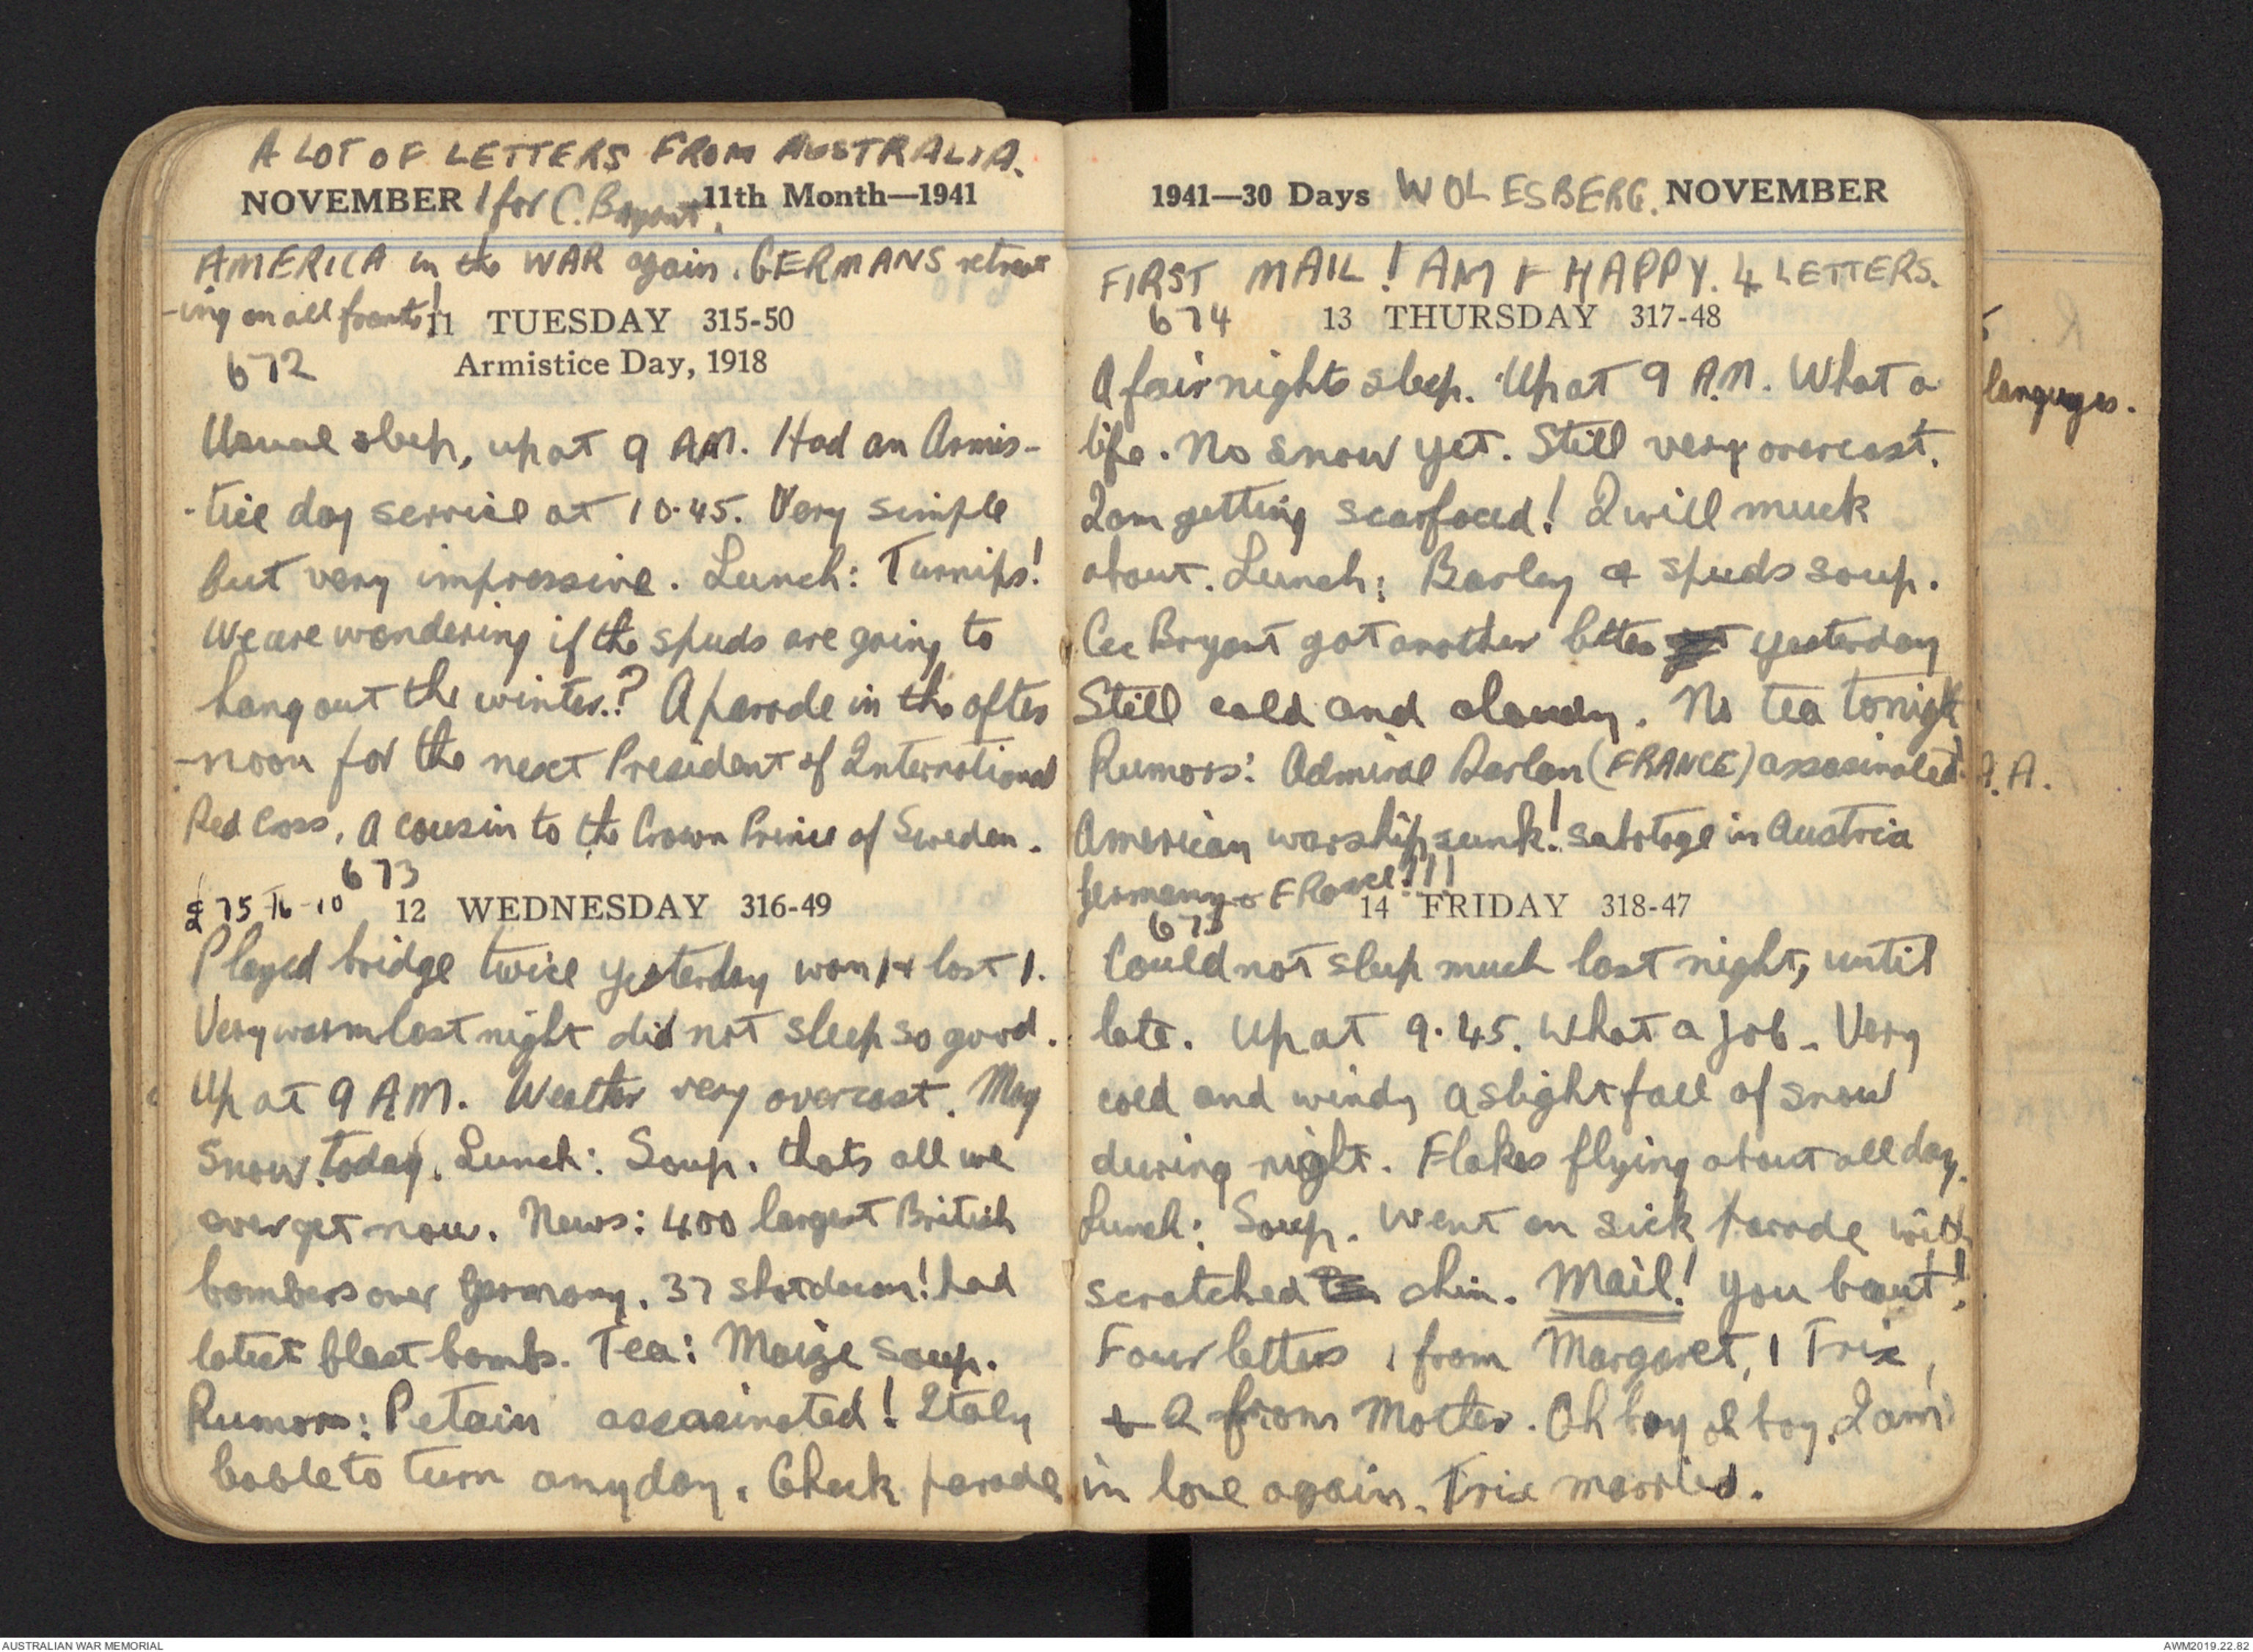 A LOT OF LETTERS FROM AUSTRALIA.
NOVEMBER 1 for C. Bryant. 11th Month—1941
AMERICA in the WAR again. GERMANS retreat
-ing on all fronts!
11 TUESDAY 315-50
672 Armistice Day, 1918
Usual sleep, up at 9 AM. Had an Armis-
-tice day service at 10.45. Very simple
but very impressive. Lunch: Turnips!
We are wondering if the spuds are going to
hang out the winter.? A parade in the after
-noon for the next President of International
Red Cross, a cousin to the Crown Prince of Sweden.
673
£75-16-10 12 WEDNESDAY 316-49
Played bridge twice yesterday won 1 & lost 1.
Very warm last night did not sleep so good.
Up at 9 AM. Weather very overcast. May
Snow today. Lunch: Soup. thats all we
ever get now. News: 400 largest British
bombers over Germany. 37 shot down! had
latest blast bombs. Tea: Maize soup.
Rumors: Petain assasinated! Italy
liable to turn anyday. Check parade
1941—30 Days WOLFSBERG. NOVEMBER
FIRST MAIL! AM I HAPPY. 4 LETTERS.
674 13 THURSDAY 317-48
A fair nights sleep. Up at 9 A.M. What a
life. No snow yet. Still very overcast.
I am getting scarfaced! I will muck
about. Lunch: Barley & spuds soup.
Cec Bryant got another letter yesterday
Still cold and cloudy. No tea tonight
Rumors: Admiral Darlan (FRANCE) assasinated.
American warship sunk! sabotage in Austria
Germany & FRance!!!
14 FRIDAY 318-47
675
Could not sleep much last night, until
late. Up at 9.45. What a job. Very
cold and windy a slight fall of snow
during night. Flakes flying about all day.
Lunch: Soup. Went on sick parade with
scratched chin. Mail! You beaut!
Four letters 1 from Margaret, 1 Trix,
& 2 from Mother. Oh boy oh boy. I am
in love again. Trix married.
languages.
A.
AUSTRALIAN WAR MEMORIAL
AWM2019.22.82